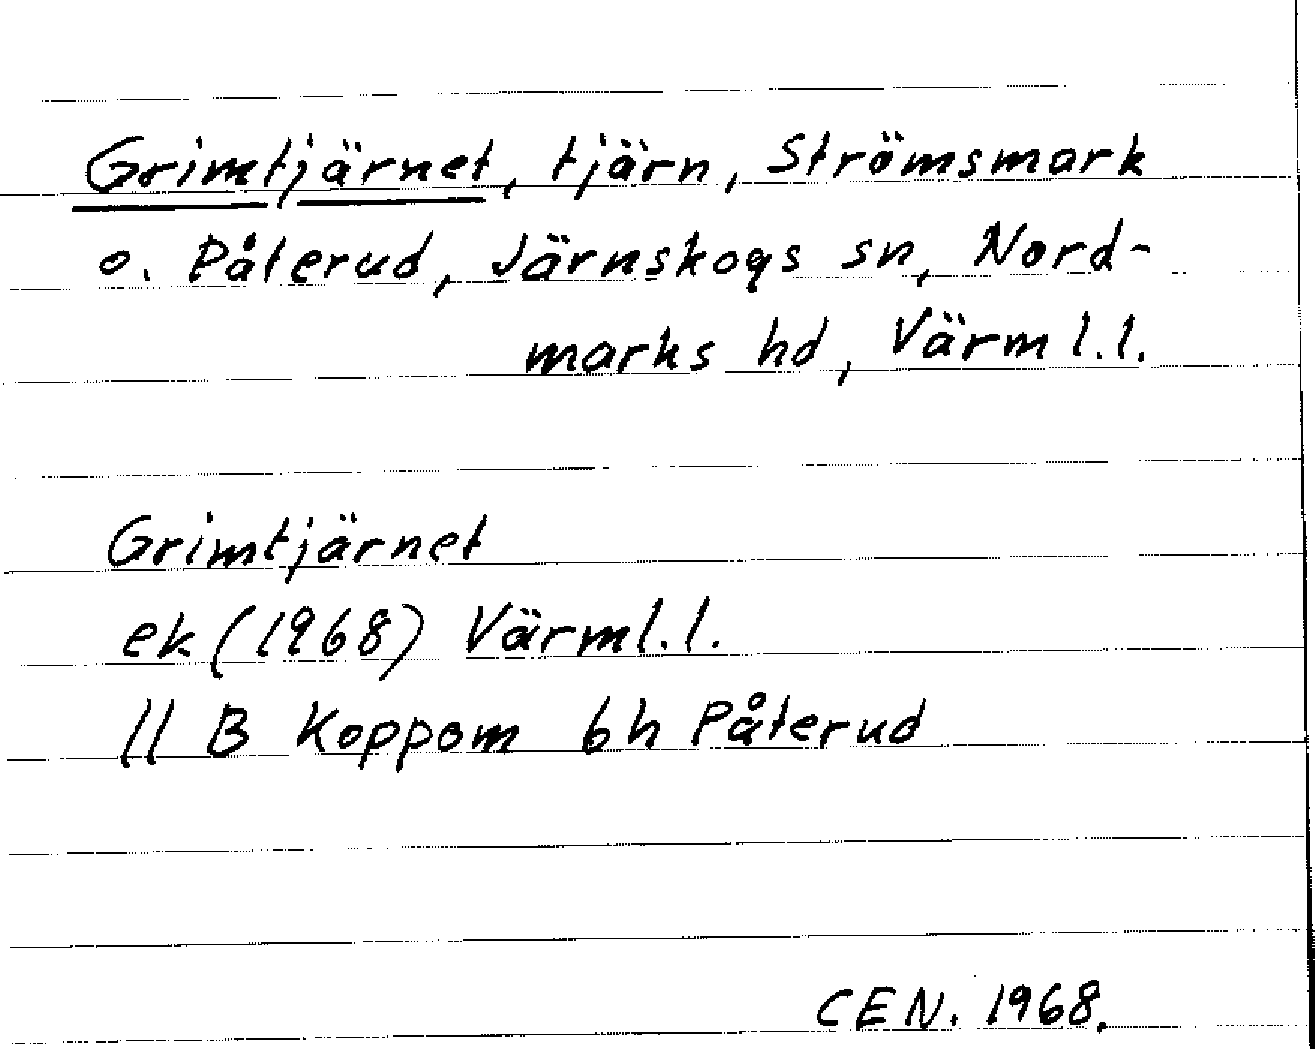 Grimtjärnet, tjärn, Strömsmark
o. Påterud, Järnskogs sn, Nord-
marks hd, Värml.l.
Grimtjärnet
ek (1968) Värml.l.
11 B Koppom 6h Påterud
CEN. 1968.